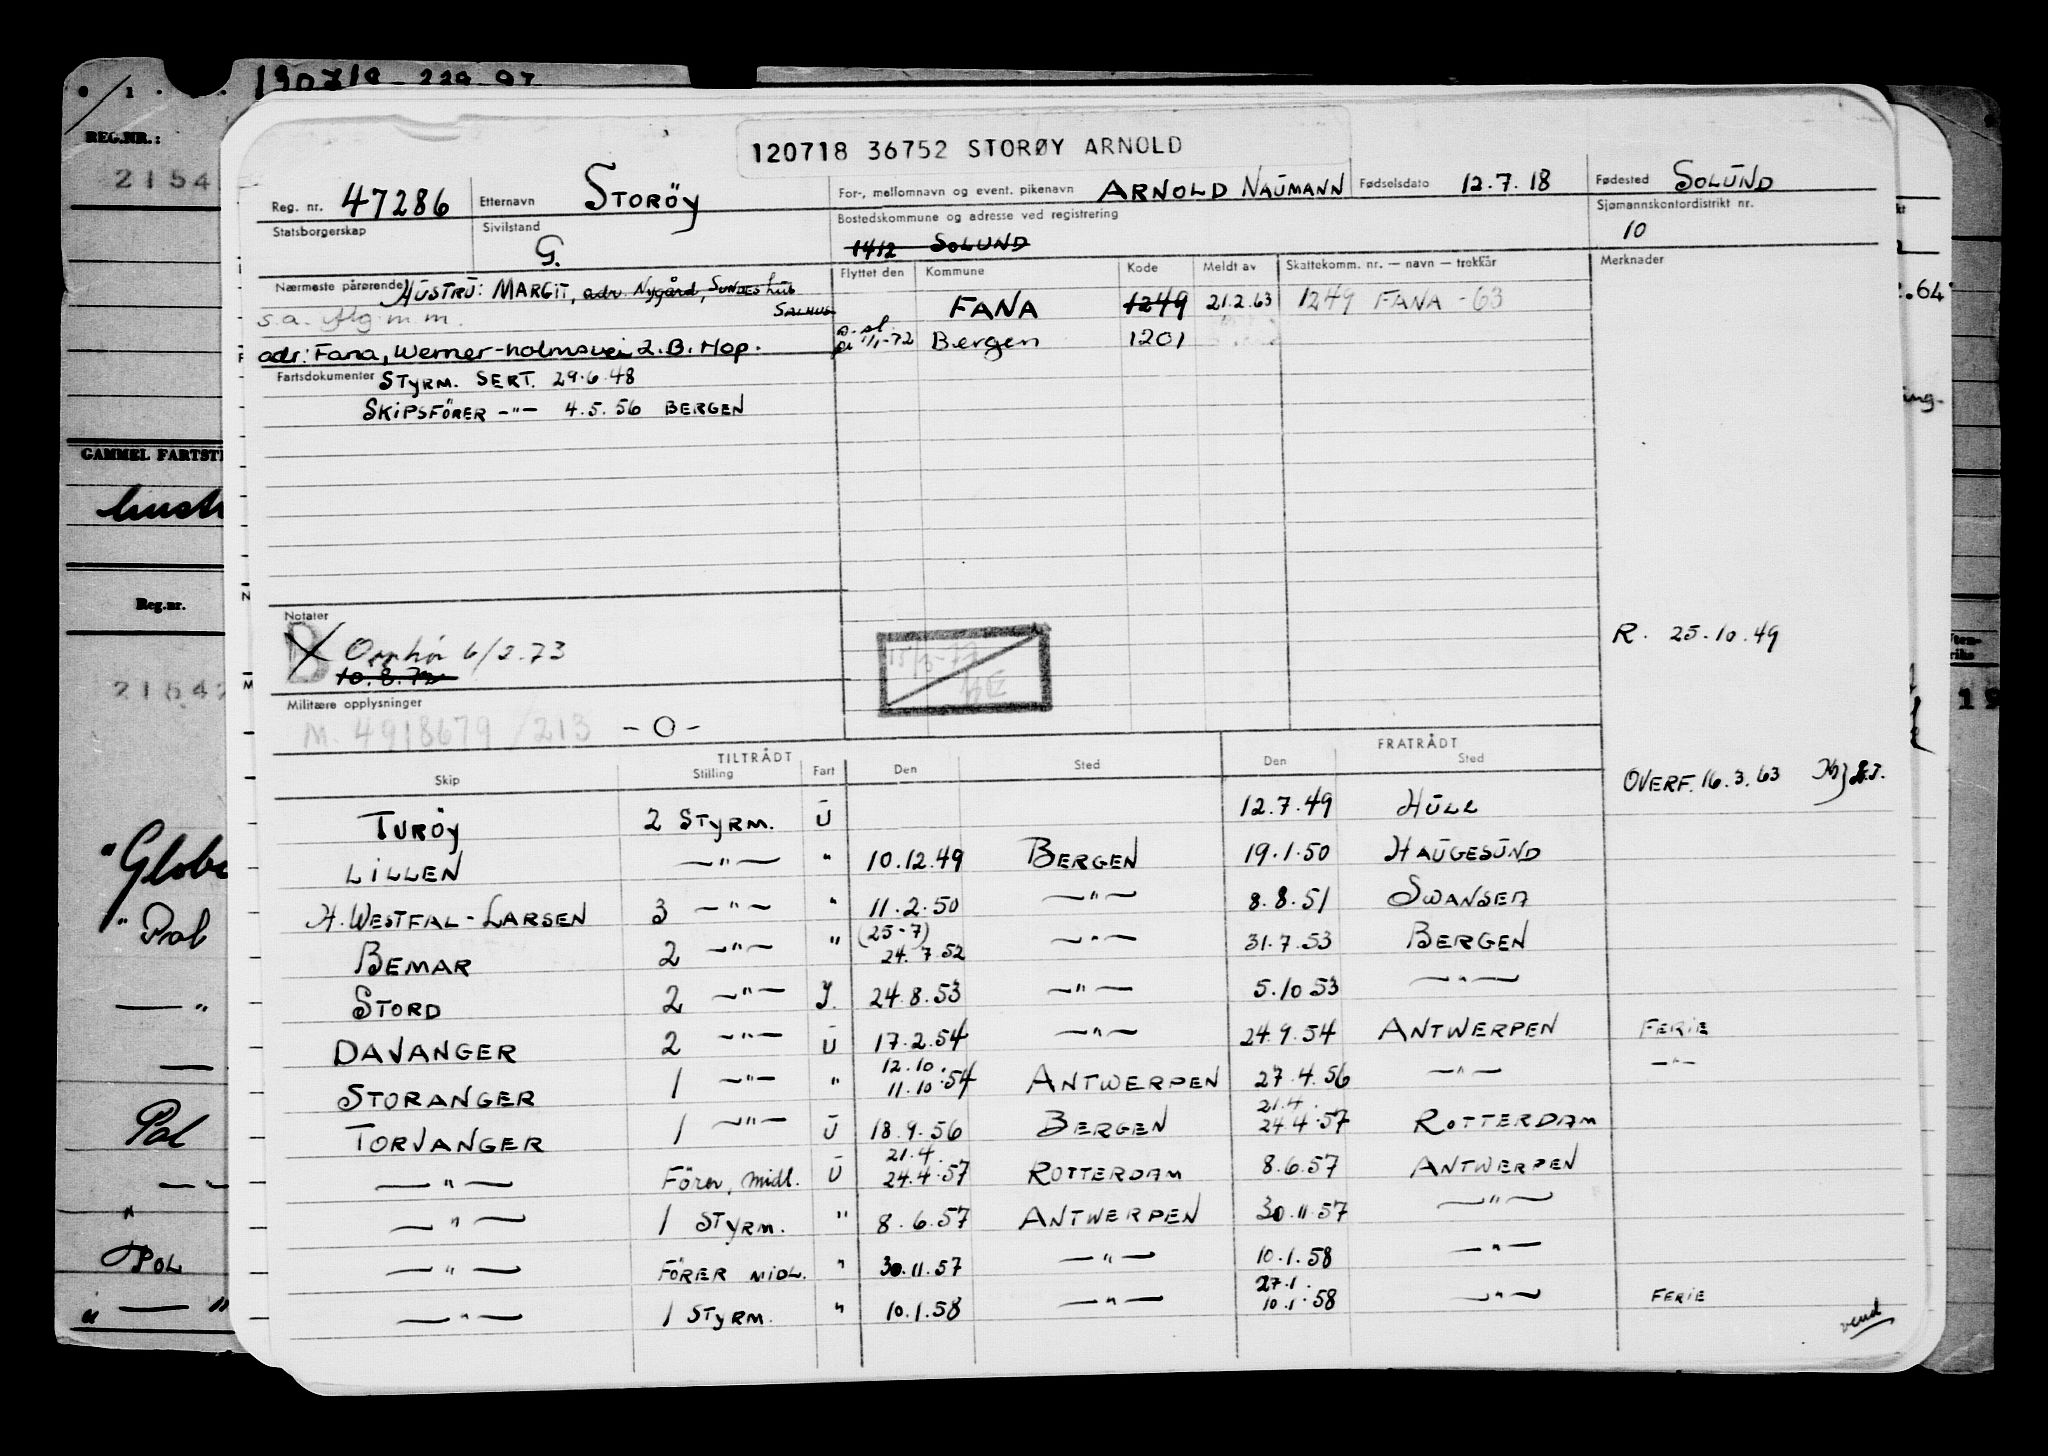 REG.NR.:
2154
GAMMEL FARTST
Reg.nr.
2154
"Globe
" Pol
Pol
POL
120718 36752 STORØY ARNOLD
Reg. nr. 47286 Etternavn STORÖY For-, mellomnavn og event. pikenavn ARNOLD NAUMANN Fødselsdato 12.7.18 Fødested SOLUND
Statsborgerskap Sivilstand G. Bostedskommune og adresse ved registrering 1412 SOLUND Sjømannskontordistrikt nr. 10
Nærmeste pårørende HUSTRU: MARGIT, adr. Nygård, SUNDES LUB SALHUS
s.a.
adr: Fana, Werner-holmsvei 2.B. Hop.
Flyttet den Kommune Kode Meldt av Skattekomm. nr. — navn — trekkår Merknader
FANA 1249 21.2.63 1249 FANA -63
1/1-72 Bergen 1201
Fartsdokumenter STYRM. SERT. 29.6.48
SKIPSFÖRER -"- 4.5.56 BERGEN
Notater
B Opphør 6/2.73
10.8.72
R. 25.10.49
Militære opplysninger
M. 4918679/213 -O-
TILTRÅDT FRATRÅDT
Skip Stilling Fart Den Sted Den Sted
OVERF. 16.3.63
TURÖY 2 STYRM. U 12.7.49 HULL
LILLEN —"— " 10.12.49 BERGEN 19.1.50 HAUGESUND
H. WESTFAL-LARSEN 3 —"— " 11.2.50 —"— 8.8.51 SWANSEA
BEMAR 2 —"— " (25-7) 24.7.52 —"— 31.7.53 BERGEN
STORD 2 —"— J. 24.8.53 —"— 5.10 53 —"—
DAVANGER 2 —"— U 17.2.54 —"— 24.9.54 ANTWERPEN FERIE
STORANGER 1 —"— " 12.10. 11.10.54 ANTWERPEN 27.4.56 —"— —"—
TORVANGER 1 —"— U 18.9.56 BERGEN 21.4. 24.4.57 ROTTERDAM
—"— Förer, midl. U 21.4. 24.4.57 ROTTERDAM 8.6.57 ANTWERPEN
—"— 1 STYRM. " 8.6.57 ANTWERPEN 30.11.57 —"—
—"— FÖRER MIDL. " 30.11.57 —"— 10.1.58 —"—
—"— 1 STYRM. " 10.1.58 —"— 27.1. 10.1.58 —"— FERIE
vend